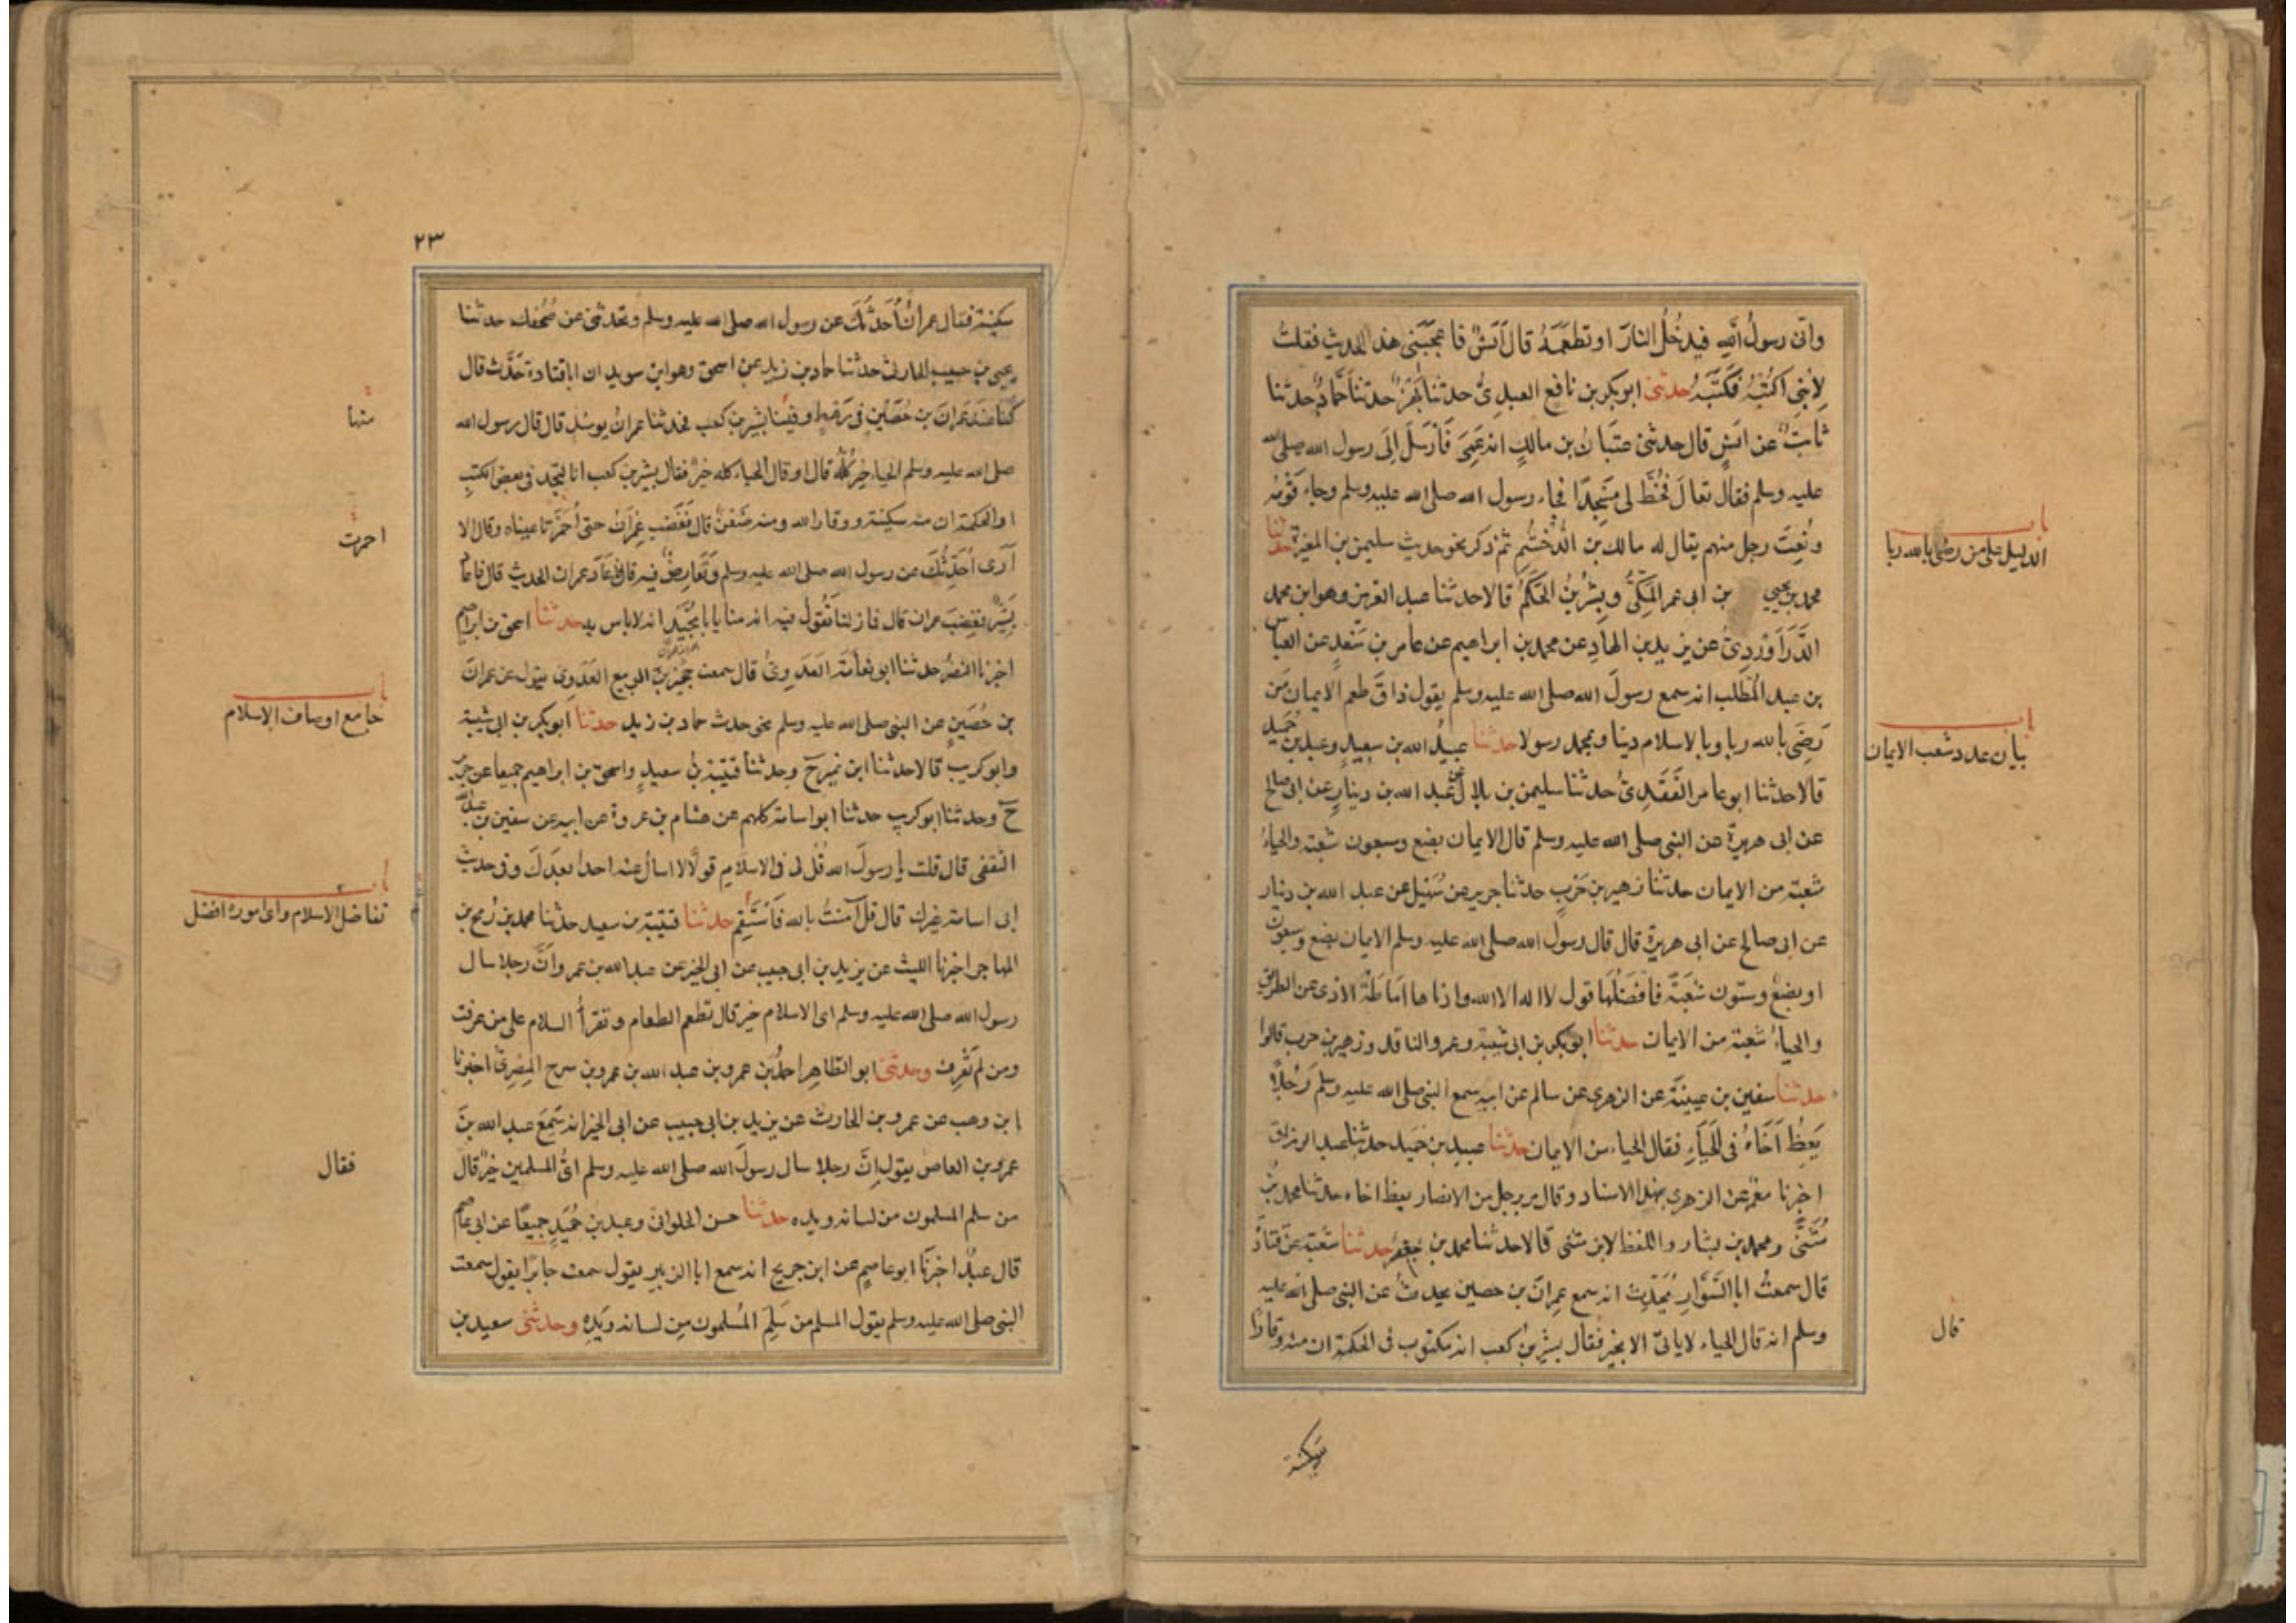 وانى رسول الله فيدخل النار او تطعمه قال انس فاعجبنى هذا الحديث فقلت
لابنى اكتبه فكتبه حدثنى ابو بكر بن نافع العبدى حدثنا بهز حدثنا حماد حدثنا
ثابت عن انس قال حدثنى عتبان بن مالك انه عمى فارسل الى رسول الله صلى الله
عليه وسلم فقال تعال فخط لى مسجدا فجاء رسول الله صلى الله عليه وسلم وجاء قومه
ونعت رجل منهم يقال له مالك بن الدخشم ثم ذكر نحو حديث سليمن بن المغيرة حدثنا
باب
الدليل على من رضى بالله ربا
محمد بن يحيى بن ابى عمر المكى وبشر بن الحكم قالا حدثنا عبد العزيز وهو ابن محمد
الدراوردى عن يزيد بن الهاد عن محمد بن ابراهيم عن عامر بن سعد عن العباس
بن عبد المطلب انه سمع رسول الله صلى الله عليه وسلم يقول ذاق طعم الايمان من
رضى بالله ربا وبالاسلام دينا وبمحمد رسولا حدثنا عبيد الله بن سعيد وعبد بن حميد
باب
بيان عدد شعب الايمان
قالا حدثنا ابو عامر العقدى حدثنا سليمن بن بلال عن عبد الله بن دينار عن ابى صالح
عن ابى هريرة عن النبى صلى الله عليه وسلم قال الايمان بضع وسبعون شعبة والحياء
شعبة من الايمان حدثنا زهير بن حرب حدثنا جرير عن سهيل عن عبد الله بن دينار
عن ابى صالح عن ابى هريرة قال قال رسول الله صلى الله عليه وسلم الايمان بضع وسبعون
او بضع وستون شعبة فافضلها قول لا اله الا الله وادناها اماطة الاذى عن الطريق
والحياء شعبة من الايمان حدثنا ابو بكر بن ابى شيبة وعمرو الناقد وزهير بن حرب قالوا
حدثنا سفين بن عيينة عن الزهرى عن سالم عن ابيه سمع النبى صلى الله عليه وسلم رجلا
يعظ اخاه فى الحياء فقال الحياء من الايمان حدثنا عبد بن حميد حدثنا عبد الرزاق
اخبرنا معمر عن الزهرى بهذا الاسناد وقال مر برجل من الانصار يعظ اخاه حدثنا محمد بن
مثنى ومحمد بن بشار واللفظ لابن مثنى قالا حدثنا محمد بن جعفر حدثنا شعبة عن قتادة
قال سمعت ابا السوار يحدث انه سمع عمران بن حصين يحدث عن النبى صلى الله عليه
وسلم انه قال الحياء لا ياتى الا بخير فقال بشير بن كعب انه مكتوب فى الحكمة ان منه وقارا
قال
سكينة
٢٣
سكينة فقال عمران احدثك عن رسول الله صلى الله عليه وسلم وتحدثنى عن صحفك حدثنا
يحيى بن حبيب الحارثى حدثنا حماد بن زيد عن اسحق وهو ابن سويد ان ابا قتادة حدث قال
كنا عند عمران بن حصين فى رهط وفينا بشير بن كعب فحدثنا عمران يومئذ قال قال رسول الله
منها
صلى الله عليه وسلم الحياء خير كله قال او قال الحياء كله خير فقال بشير بن كعب انا لنجد فى بعض الكتب
او الحكمة ان منه سكينة ووقارا لله ومنه ضعف قال فغضب عمران حتى احمرتا عيناه وقال الا
احمرت
ارى احدثك عن رسول الله صلى الله عليه وسلم وتعارض فيه قال فاعاد عمران الحديث قال فاعاد
بشير فغضب عمران قال فما زلنا نقول فيه انه منا يا ابا نجيد انه لا باس به حدثنا اسحق بن ابراهيم
اخبرنا النضر حدثنا ابو نعامة العدوى قال سمعت حجير بن الربيع العدوى يقول عن عمران
بن حصين عن النبى صلى الله عليه وسلم نحو حديث حماد بن زيد حدثنا ابو بكر بن ابى شيبة
باب
جامع اوصاف الاسلام
وابو كريب قالا حدثنا ابن نمير ح وحدثنا قتيبة بن سعيد واسحق بن ابراهيم جميعا عن جرير
ح وحدثنا ابو كريب حدثنا ابو اسامة كلهم عن هشام بن عروة عن ابيه عن سفين بن عبد الله
الثقفى قال قلت يا رسول الله قل لى فى الاسلام قولا لا اسال عنه احدا بعدك وفى حديث
ابى اسامة غيرك قال قل آمنت بالله فاستقم حدثنا قتيبة بن سعيد حدثنا محمد بن رمح بن
باب
تفاضل الاسلام واى اموره افضل
المهاجر اخبرنا الليث عن يزيد بن ابى حبيب عن ابى الخير عن عبد الله بن عمرو ان رجلا سال
رسول الله صلى الله عليه وسلم اى الاسلام خير قال تطعم الطعام وتقرأ السلام على من عرفت
ومن لم تعرف وحدثنى ابو الطاهر احمد بن عمرو بن عبد الله بن عمرو بن سرح المصرى اخبرنا
ابن وهب عن عمرو بن الحارث عن يزيد بن ابى حبيب عن ابى الخير انه سمع عبد الله بن
عمرو بن العاص يقول ان رجلا سال رسول الله صلى الله عليه وسلم اى المسلمين خير قال
فقال
من سلم المسلمون من لسانه ويده حدثنا حسن الحلوانى وعبد بن حميد جميعا عن ابى عاصم
قال عبد اخبرنا ابو عاصم عن ابن جريج انه سمع ابا الزبير يقول سمعت جابرا يقول سمعت
النبى صلى الله عليه وسلم يقول المسلم من سلم المسلمون من لسانه ويده وحدثنى سعيد بن